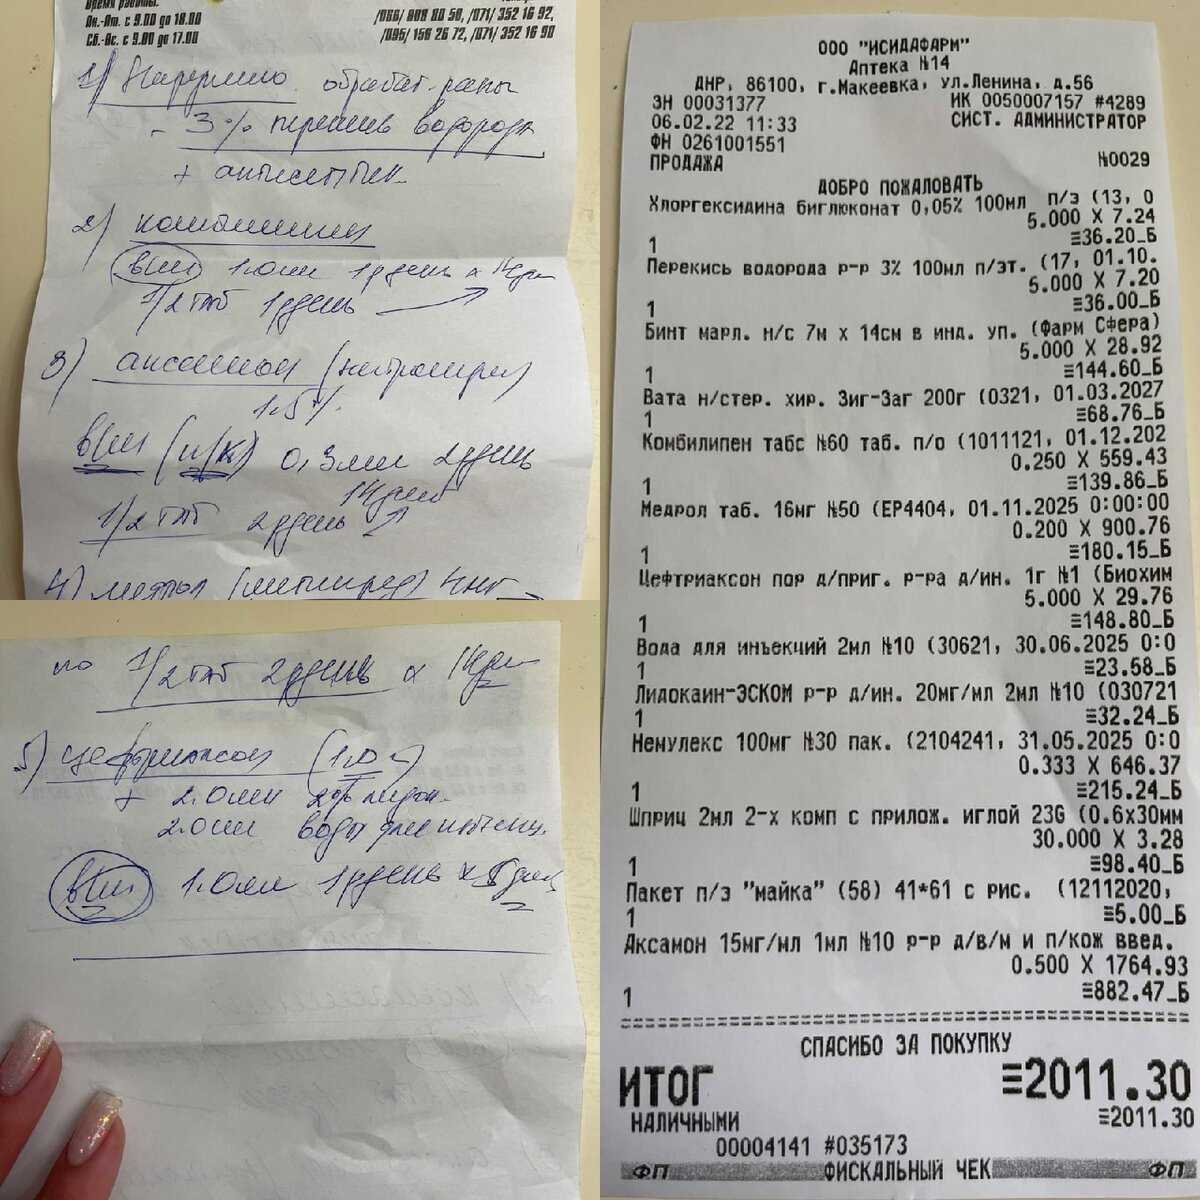 Время работы:
Пн.-Пт. с 9.00 до 18.00
Сб.-Вс. с 9.00 до 17.00
/066/ 808 80 50, /071/ 352 16 92,
/095/ 156 26 72, /071/ 352 16 90
1) Наружно обработ. раны
- 3% перекись водорода
+ антисептик
2) комбилипен
в/м 1.0мл 1р день х 14дн
1/2 таб 1р день
3) аксамон (нейромидин)
1.5%
в/м (п/к) 0,3мл 2р день
14 дней
1/2 таб 2р день
4) медрол (метипред) 4мг
по 1/2 таб 2р день х 14дн
5) цефтриаксон (1.0)
+ 2.0мл 2% лидок.
2.0мл воды для инъекц.
в/м 1.0мл 1р день х 5 дней
ООО "ИСИДАФАРМ"
Аптека №14
ДНР, 86100, г.Макеевка, ул.Ленина, д.56
ЗН 00031377 ИК 0050007157 #4289
06.02.22 11:33 СИСТ. АДМИНИСТРАТОР
ФН 0261001551
ПРОДАЖА №0029
ДОБРО ПОЖАЛОВАТЬ
Хлоргексидина биглюконат 0,05% 100мл п/э (13, 0
5.000 X 7.24
1 ≡36.20_Б
Перекись водорода р-р 3% 100мл п/эт. (17, 01.10.
5.000 X 7.20
1 ≡36.00_Б
Бинт марл. н/с 7м х 14см в инд. уп. (Фарм Сфера)
5.000 X 28.92
1 ≡144.60_Б
Вата н/стер. хир. Зиг-Заг 200г (0321, 01.03.2027
1 ≡68.76_Б
Комбилипен табс №60 таб. п/о (1011121, 01.12.202
0.250 X 559.43
1 ≡139.86_Б
Медрол таб. 16мг №50 (EP4404, 01.11.2025 0:00:00
0.200 X 900.76
1 ≡180.15_Б
Цефтриаксон пор д/приг. р-ра д/ин. 1г №1 (Биохим
5.000 X 29.76
1 ≡148.80_Б
Вода для инъекций 2мл №10 (30621, 30.06.2025 0:0
1 ≡23.58_Б
Лидокаин-ЭСКОМ р-р д/ин. 20мг/мл 2мл №10 (030721
1 ≡32.24_Б
Немулекс 100мг №30 пак. (2104241, 31.05.2025 0:0
0.333 X 646.37
1 ≡215.24_Б
Шприц 2мл 2-х комп с прилож. иглой 23G (0.6х30мм
30.000 X 3.28
1 ≡98.40_Б
Пакет п/э "майка" (58) 41*61 с рис. (12112020,
1 ≡5.00_Б
Аксамон 15мг/мл 1мл №10 р-р д/в/м и п/кож введ.
0.500 X 1764.93
1 ≡882.47_Б
СПАСИБО ЗА ПОКУПКУ
ИТОГ ≡2011.30
НАЛИЧНЫМИ ≡2011.30
00004141 #035173
ФП ФИСКАЛЬНЫЙ ЧЕК ФП